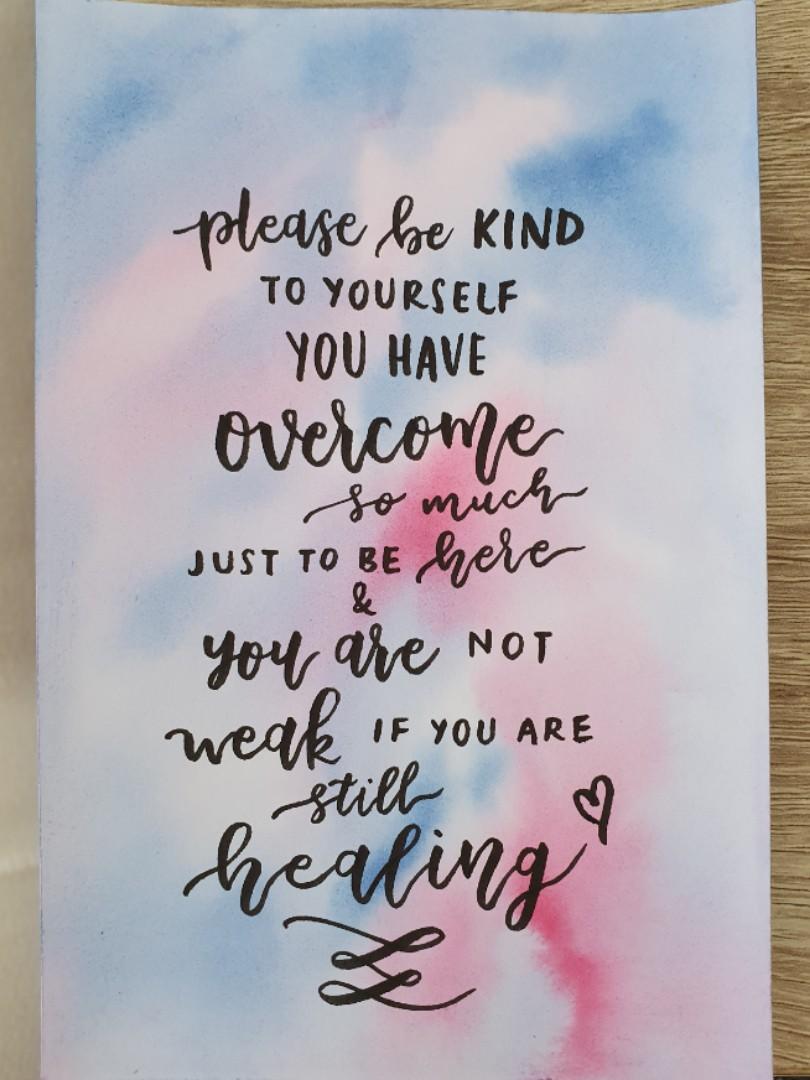 please be KIND
TO YOURSELF
YOU HAVE
overcome
so much
JUST TO BE here
&
you are NOT
weak IF YOU ARE
still
healing